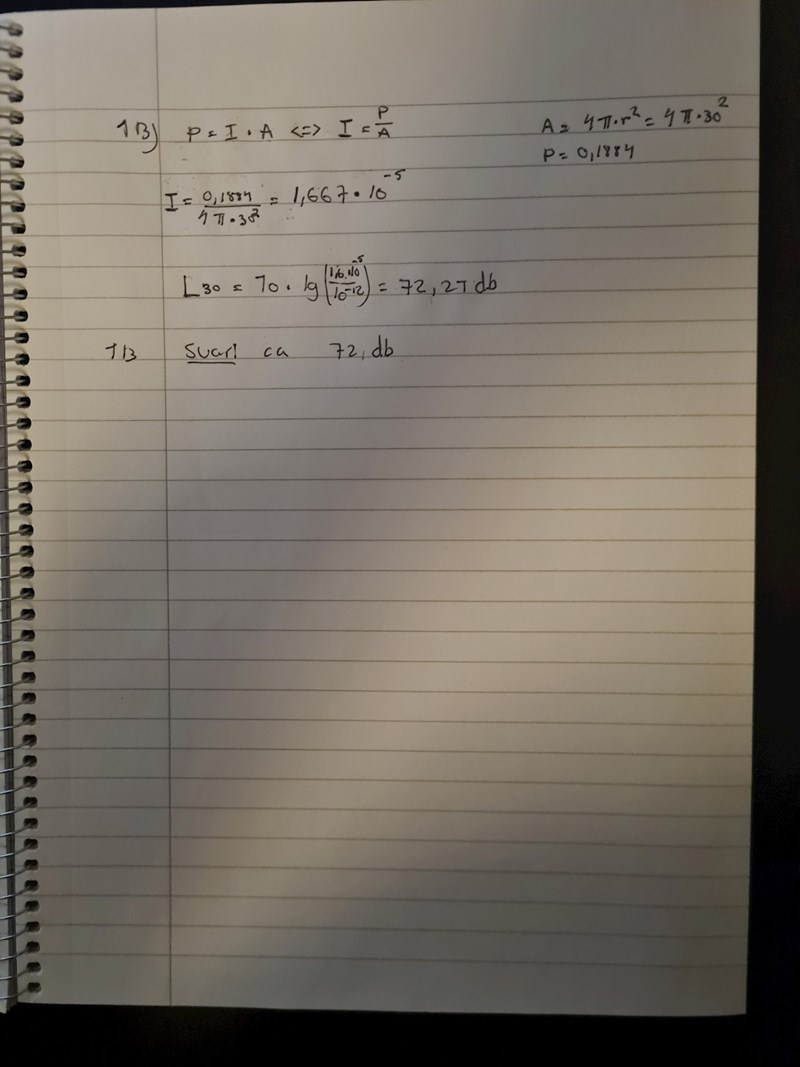 1B) P = I · A <=> I = P/A
A = 4π·r² = 4π·30²
P = 0,1884
I = 0,1884/4π·30² = 1,667·10⁻⁵
L30 = 10 · lg(1,6·10⁻⁵/10⁻¹²) = 72,27 db
1B Svar! ca 72, db